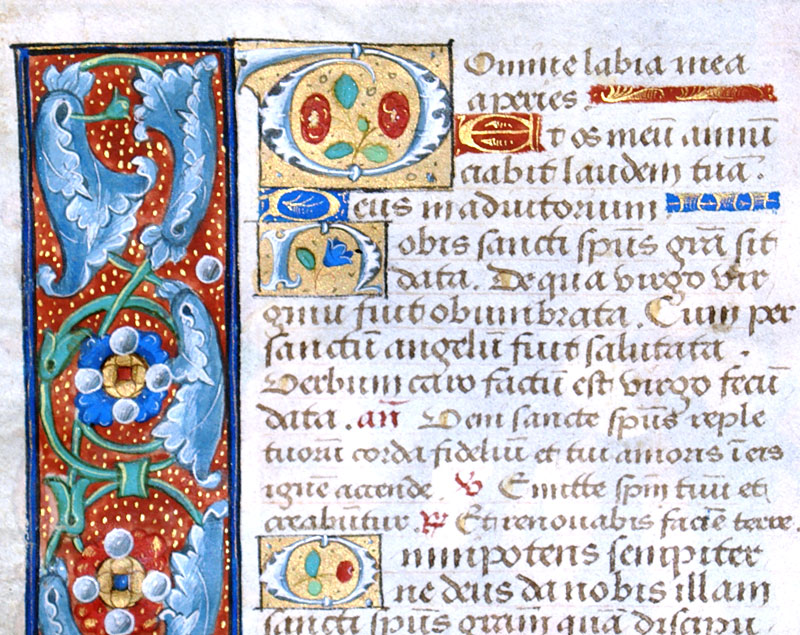 Domine labia mea
aperies.
Et os meū annū
ciabit laudem tuā.
Deus in adiutorium
Nobis sancti spūs grā sit
data. De qua virgo vir
ginū fuit obumbrata. Cum per
sanctū angelū fuit salutata.
Verbum caro factū est virgo fecū
data. añ Veni sancte spūs reple
tuorū corda fidelīu et tui amoris ī eis
ignē accende. v Emitte spm̄ tuū et
creabūtur. R Et renouabis faciē terre.
Omnipotens sempiter
ne deus da nobis illam
sancti spūs gram̄ quā discipu